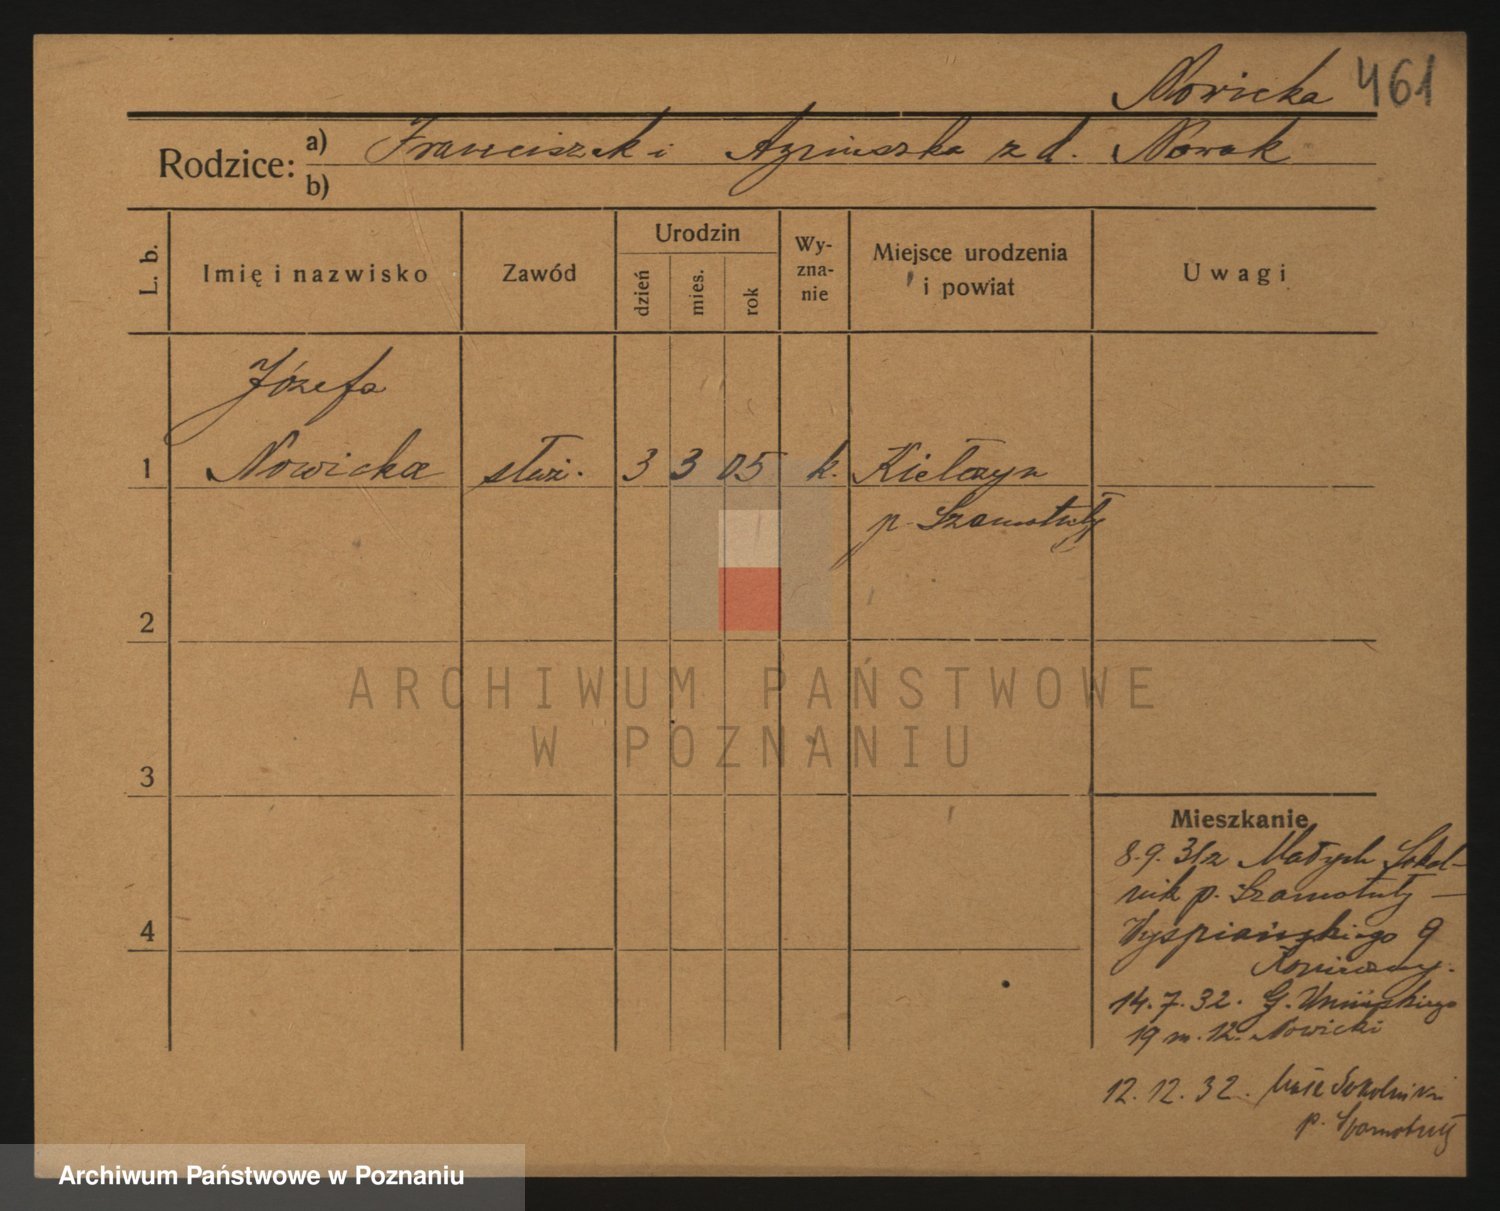 Nowicka 461
Rodzice: a) Franciszek i Agnieszka z d. Nowak
b)
L. b.
Imię i nazwisko
Zawód
Urodzin
dzień
mies.
rok
Wy-
zna-
nie
Miejsce urodzenia
i powiat
Uwagi
Józefa
1 Nowicka służ. 3 3 05 k. Kiełczyn
p. Szamotuły
2
3
4
ARCHIWUM PAŃSTWOWE
W POZNANIU
Mieszkanie
8.9.31 z Małych Sokol-
nik p. Szamotuły —
Wyspiańskiego 9
Konieczny.
14.7.32. G.
19 m. 12. Nowicki
12.12.32. Małe Sokolniki
p. Szamotuły
Archiwum Państwowe w Poznaniu